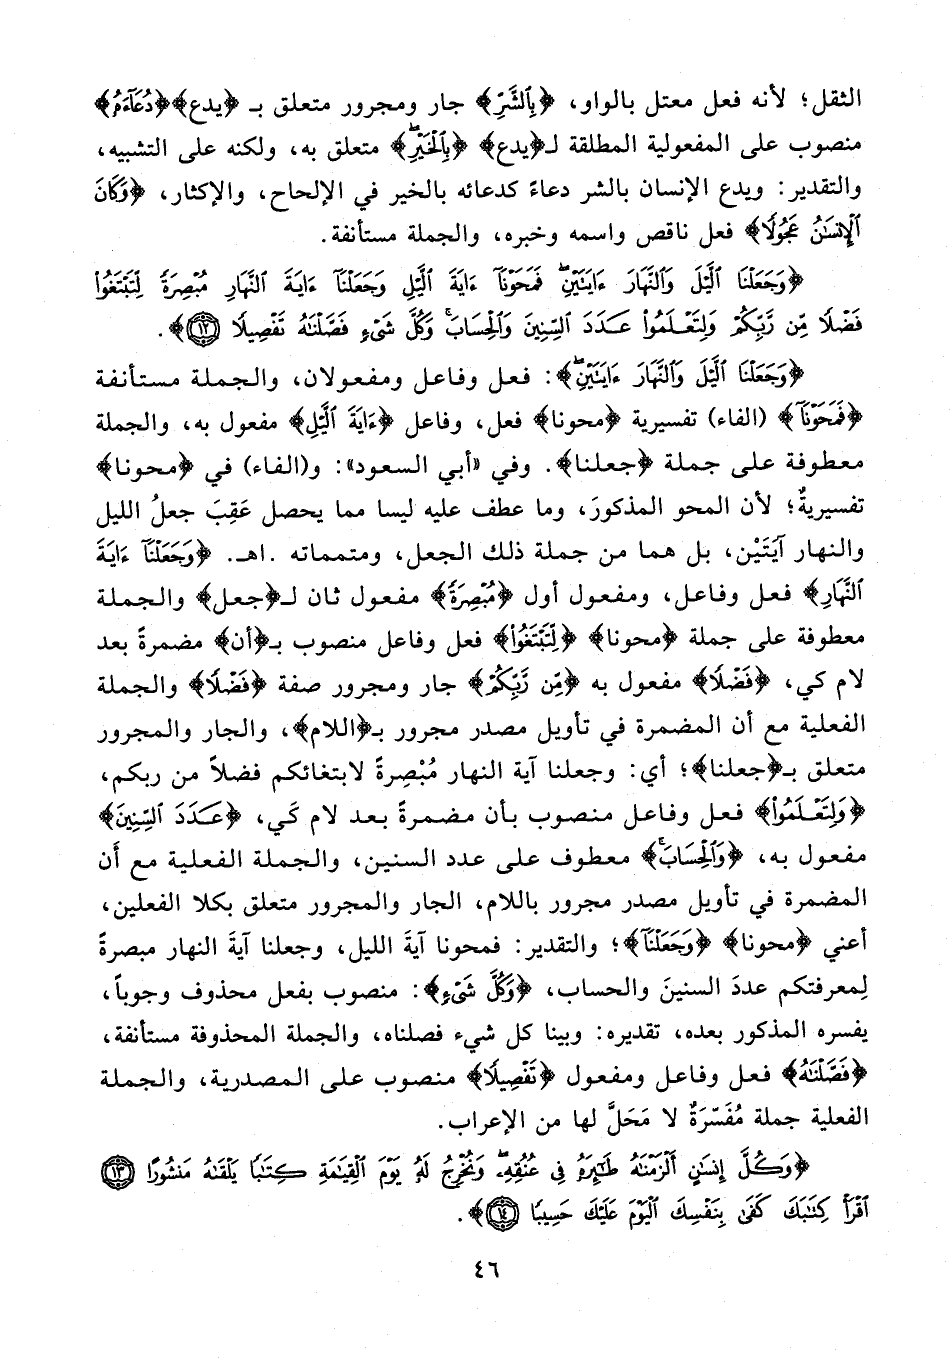 الثقل؛ لأنه فعل معتل بالواو، ﴿بِالشَّرِّ﴾ جار ومجرور متعلق بـ ﴿يدع﴾﴿دُعَآءَهُ﴾
منصوب على المفعولية المطلقة لـ﴿يدع﴾ ﴿بِالْخَيْرِۖ﴾ متعلق به، ولكنه على التشبيه،
والتقدير: ويدع الإنسان بالشر دعاءً كدعائه بالخير في الإلحاح، والإكثار، ﴿وَكَانَ
ٱلْإِنسَٰنُ عَجُولًا﴾ فعل ناقص واسمه وخبره، والجملة مستأنفة.
﴿وَجَعَلْنَا ٱلَّيْلَ وَٱلنَّهَارَ ءَايَتَيْنِۖ فَمَحَوْنَآ ءَايَةَ ٱلَّيْلِ وَجَعَلْنَآ ءَايَةَ ٱلنَّهَارِ مُبْصِرَةً لِّتَبْتَغُوا۟
فَضْلًا مِّن رَّبِّكُمْ وَلِتَعْلَمُوا۟ عَدَدَ ٱلسِّنِينَ وَٱلْحِسَابَۚ وَكُلَّ شَىْءٍ فَصَّلْنَٰهُ تَفْصِيلًا ١٢﴾.
﴿وَجَعَلْنَا ٱلَّيْلَ وَٱلنَّهَارَ ءَايَتَيْنِۖ﴾: فعل وفاعل ومفعولان، والجملة مستأنفة
﴿فَمَحَوْنَآ﴾ (الفاء) تفسيرية ﴿محونا﴾ فعل، وفاعل ﴿ءَايَةَ ٱلَّيْلِ﴾ مفعول به، والجملة
معطوفة على جملة ﴿جعلنا﴾. وفي «أبي السعود»: و(الفاء) في ﴿محونا﴾
تفسيريةٌ؛ لأن المحو المذكورَ، وما عطف عليه ليسا مما يحصل عَقِبَ جعلُ الليل
والنهار آيَتَيْن، بل هما من جملة ذلك الجعل، ومتمماته .اهـ. ﴿وَجَعَلْنَآ ءَايَةَ
ٱلنَّهَارِ﴾ فعل وفاعل، ومفعول أول ﴿مُبْصِرَةً﴾ مفعول ثان لـ﴿جعل﴾ والجملة
معطوفة على جملة ﴿محونا﴾ ﴿لِّتَبْتَغُوا۟﴾ فعل وفاعل منصوب بـ﴿أن﴾ مضمرةً بعد
لام كي، ﴿فَضْلًا﴾ مفعول به ﴿مِّن رَّبِّكُمْ﴾ جار ومجرور صفة ﴿فَضْلًا﴾ والجملة
الفعلية مع أن المضمرة في تأويل مصدر مجرور بـ﴿اللام﴾، والجار والمجرور
متعلق بـ﴿جعلنا﴾؛ أي: وجعلنا آية النهار مُبْصِرةً لابتغائكم فضلاً من ربكم،
﴿وَلِتَعْلَمُوا۟﴾ فعل وفاعل منصوب بأن مضمرةً بعد لام كَي، ﴿عَدَدَ ٱلسِّنِينَ﴾
مفعول به، ﴿وَٱلْحِسَابَۚ﴾ معطوف على عدد السنين، والجملة الفعلية مع أَن
المضمرة في تأويل مصدر مجرور باللام، الجار والمجرور متعلق بكلا الفعلين،
أعني ﴿محونا﴾ ﴿وَجَعَلْنَآ﴾؛ والتقدير: فمحونا آيةَ الليل، وجعلنا آيةَ النهار مبصرةً
لِمعرفتكم عددَ السنينَ والحساب، ﴿وَكُلَّ شَىْءٍ﴾: منصوب بفعل محذوف وجوباً،
يفسره المذكور بعده، تقديره: وبينا كل شيء فصلناه، والجملة المحذوفة مستأنفة،
﴿فَصَّلْنَٰهُ﴾ فعل وفاعل ومفعول ﴿تَفْصِيلًا﴾ منصوب على المصدرية، والجملة
الفعلية جملة مُفَسّرَةٌ لا مَحَلَّ لها من الإعراب.
﴿وَكُلَّ إِنسَٰنٍ أَلْزَمْنَٰهُ طَٰٓئِرَهُۥ فِى عُنُقِهِۦۖ وَنُخْرِجُ لَهُۥ يَوْمَ ٱلْقِيَٰمَةِ كِتَٰبًا يَلْقَىٰهُ مَنشُورًا ١٣
ٱقْرَأْ كِتَٰبَكَ كَفَىٰ بِنَفْسِكَ ٱلْيَوْمَ عَلَيْكَ حَسِيبًا ١٤﴾.
٤٦